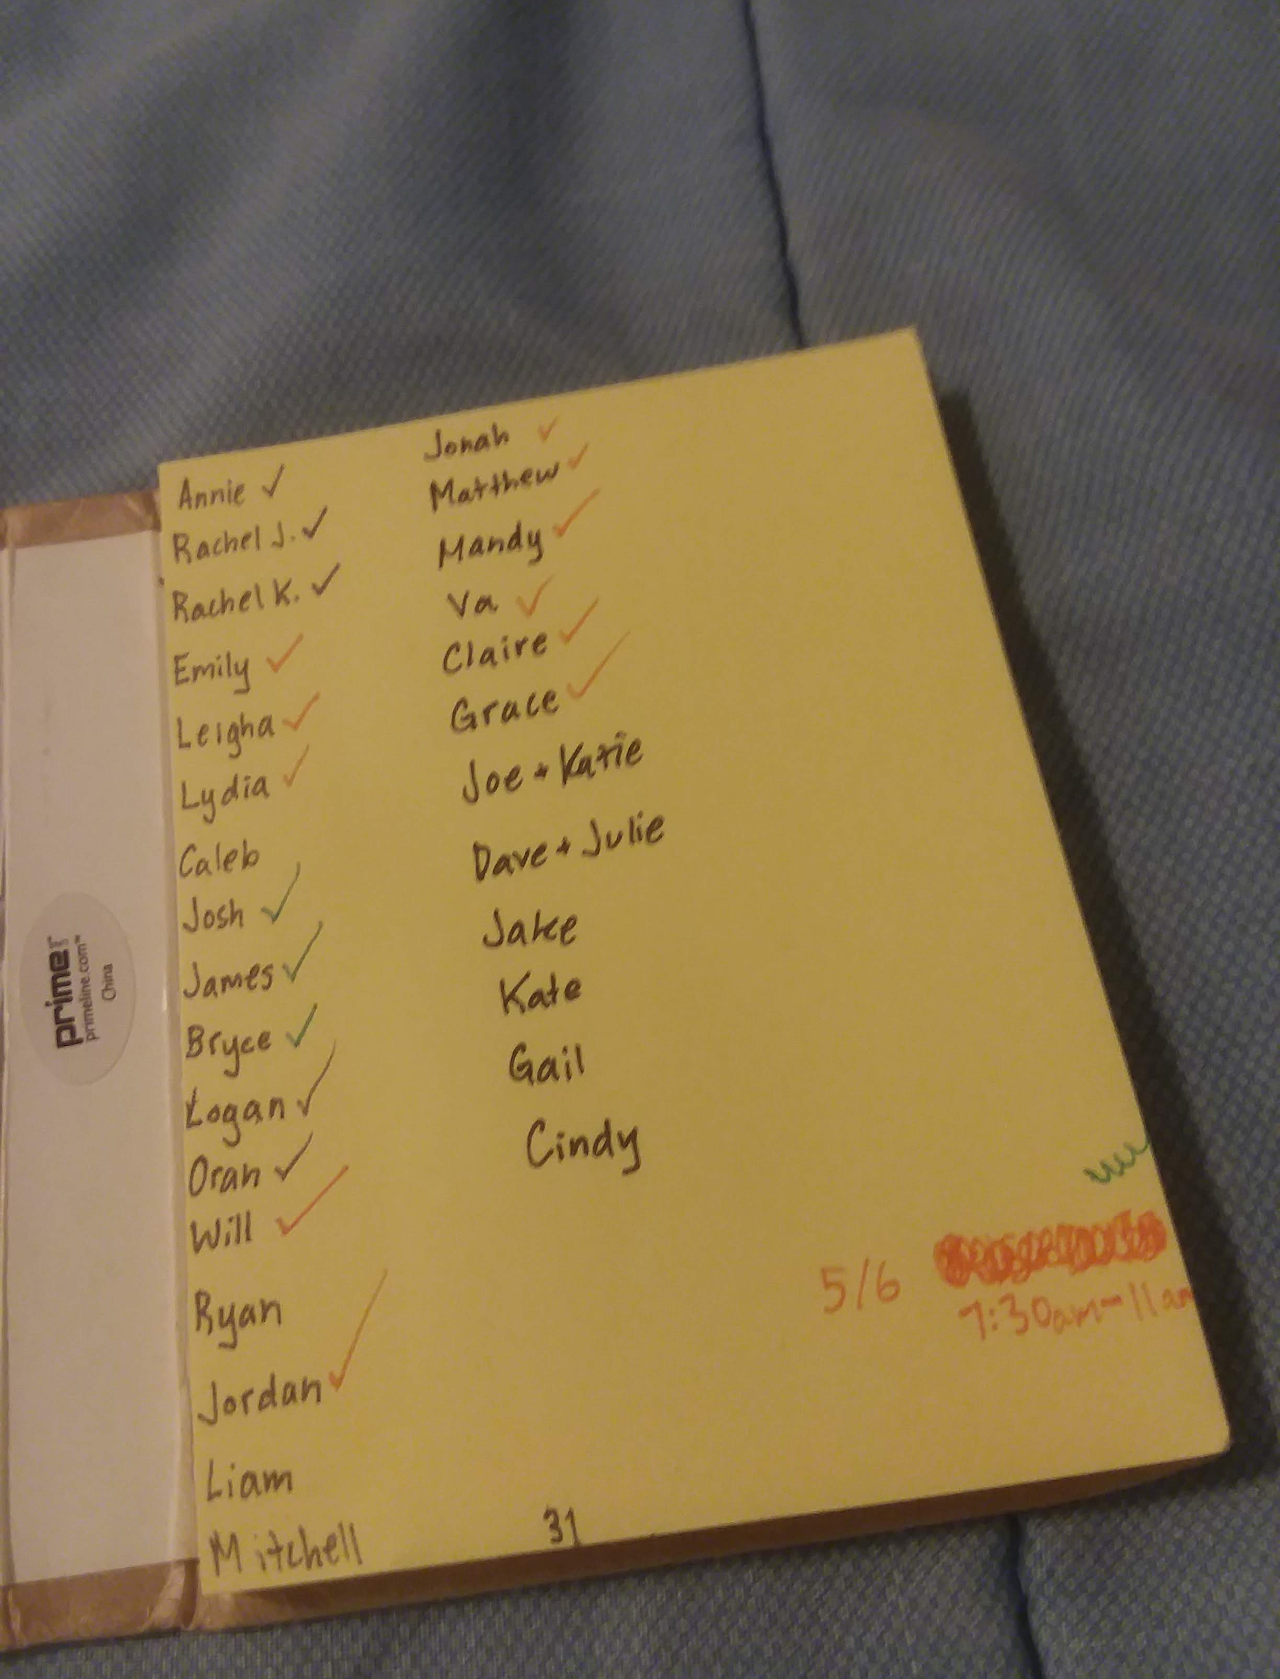 Annie ✓
Rachel J. ✓
Rachel K. ✓
Emily ✓
Leigha ✓
Lydia ✓
Caleb
Josh ✓
James ✓
Bryce ✓
Logan ✓
Oran ✓
Will ✓
Ryan
Jordan ✓
Liam
Mitchell
Jonah ✓
Matthew ✓
Mandy ✓
Va ✓
Claire ✓
Grace ✓
Joe + Katie
Dave + Julie
Jake
Kate
Gail
Cindy
31
5/6
7:30am-11am
prime
primeline.com™
China